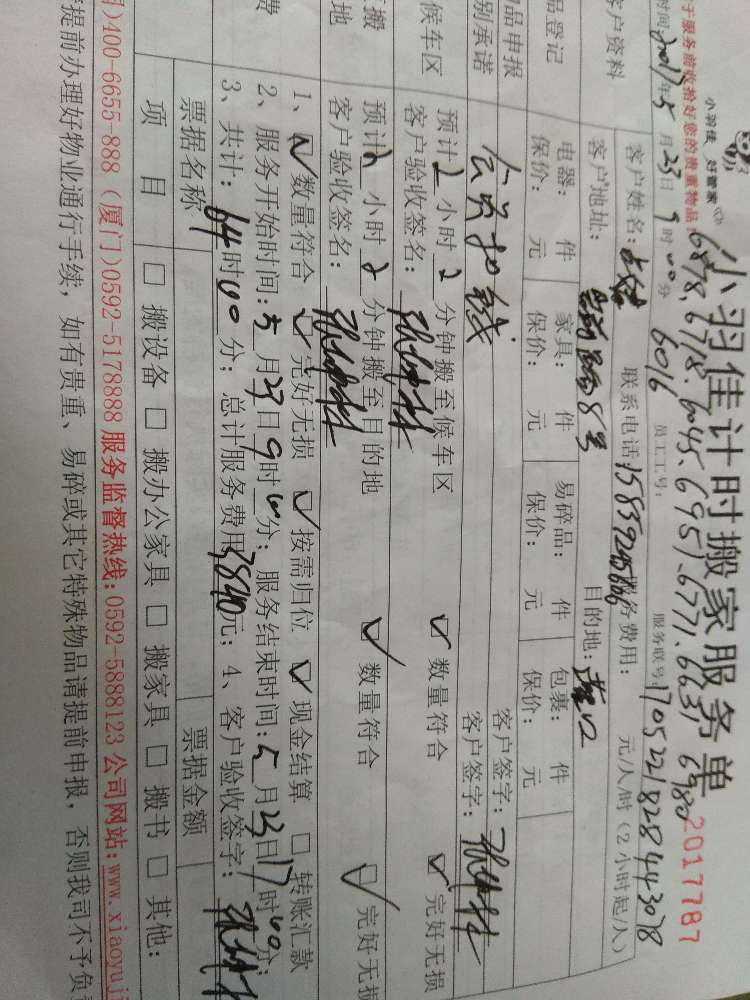 小羽佳 好管家
小羽佳计时搬家服务单
2017787
于服务前收拾好您的贵重物品
6878、6718、6045、6957、6771、6631 6980
时间 2017年5月23日9时00分 6016 员工工号: 服务联号: 170522182844 3078
客户资料 客户姓名: 联系电话 服务费用: 元/人/时（2小时起/人）
客户地址: 8号 目的地:
品登记 电器: 件 家具: 件 易碎品: 件 包裹: 件
保价: 元 保价: 元 保价: 元 保价: 元
品申报 客户签字:
别承诺 客户签字:
候车区 预计2小时2分钟搬至候车区 数量符合 完好无损
客户验收签名:
搬 预计2小时2分钟搬至目的地 数量符合 完好无损
地 客户验收签名:
1、 数量符合 完好无损 按需归位 现金结算 转账汇款
费 2、服务开始时间:5月23日9时00分; 服务结束时间:5月23日17时00分;
3、共计:64时00分; 总计服务费用3840元; 4、客户验收签字:
票据名称 票据金额
项 目 □ 搬设备 □ 搬办公家具 □ 搬家具 □ 搬书 □ 其他:
)400-6655-888（厦门)0592-5178888 服务监督热线:0592-5888123 公司网站:www.xiaoyuji
提前办理好物业通行手续，如有贵重、易碎或其它特殊物品请提前申报，否则我司不予负